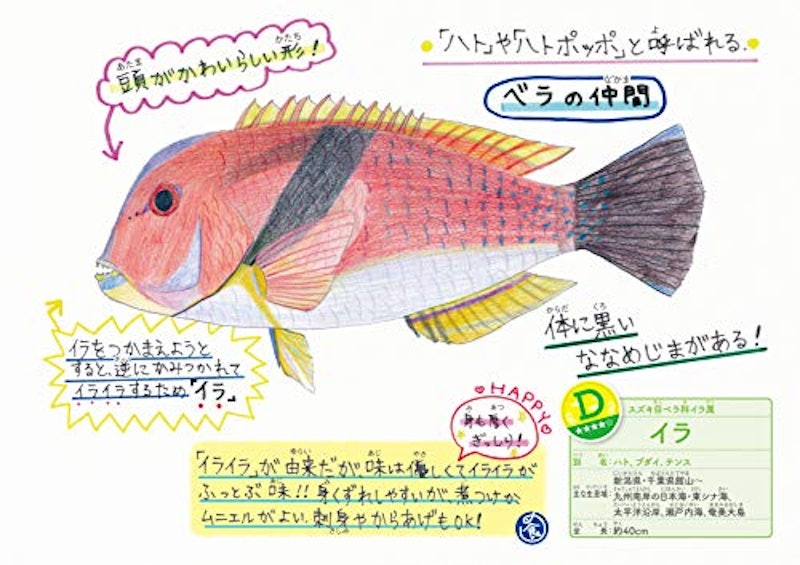 頭がかわいらしい形!
「ハト」や「ハトポッポ」と呼ばれる.
ベラの仲間
体に黒い
ななめじまがある!
イラをつかまえようと
すると、逆にかみつかれて
イライラするため「イラ」
HAPPY
身も厚く
ぎっしり!
「イライラ」が由来だが味は優しくてイライラが
ふっとぶ味!!身くずれしやすいが、煮つけか
ムニエルがよい.刺身やからあげもOK!
食
D
★★★★☆
スズキ目ベラ科イラ属
イラ
別名:ハト、ブダイ、テンス
主な生息域:新潟県・千葉県館山〜
九州南岸の日本海・東シナ海、
太平洋沿岸、瀬戸内海、奄美大島
全長:約40cm